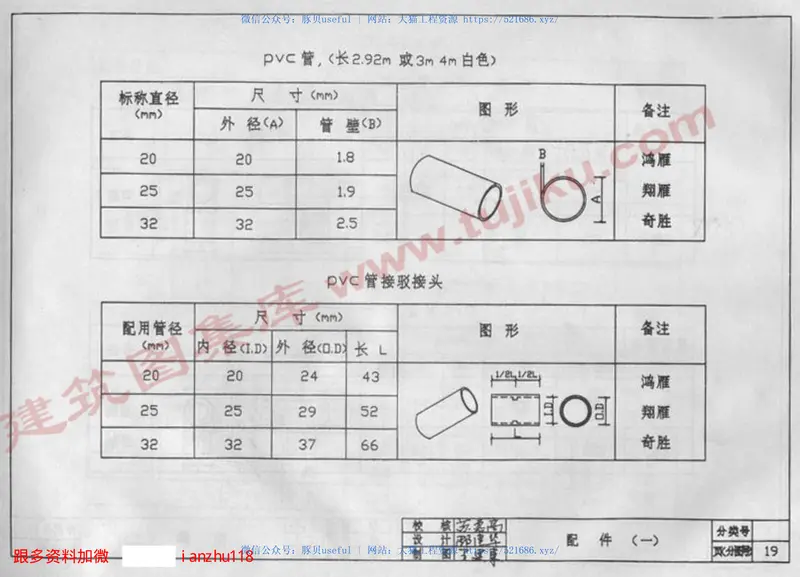 微信公众号：豚贝useful | 网站：大猫工程资源 https://521686.xyz/
PVC 管，（长2.92m 或3m 4m 白色）
标称直径 尺 寸 (mm) 图 形 备注
(mm)
外 径(A) 管 壁(B)
20 20 1.8 B 鸿雁
25 25 1.9 A 翔雁
32 32 2.5 奇胜
PVC 管接驳接头
配用管径 尺 寸 (mm) 图 形 备注
(mm)
内 径(I.D) 外 径(O.D) 长 L
20 20 24 43 1/2L 1/2L 鸿雁
25 25 29 52 I.D O.D 翔雁
32 32 37 66 L 奇胜
建筑图集库 www.tujiku.com
校 核
设 计 配 件 (一) 分类号
制 图 页(分图)号 19
微信公众号：豚贝useful | 网站：大猫工程资源 https://521686.xyz/
跟多资料加微 ianzhu118